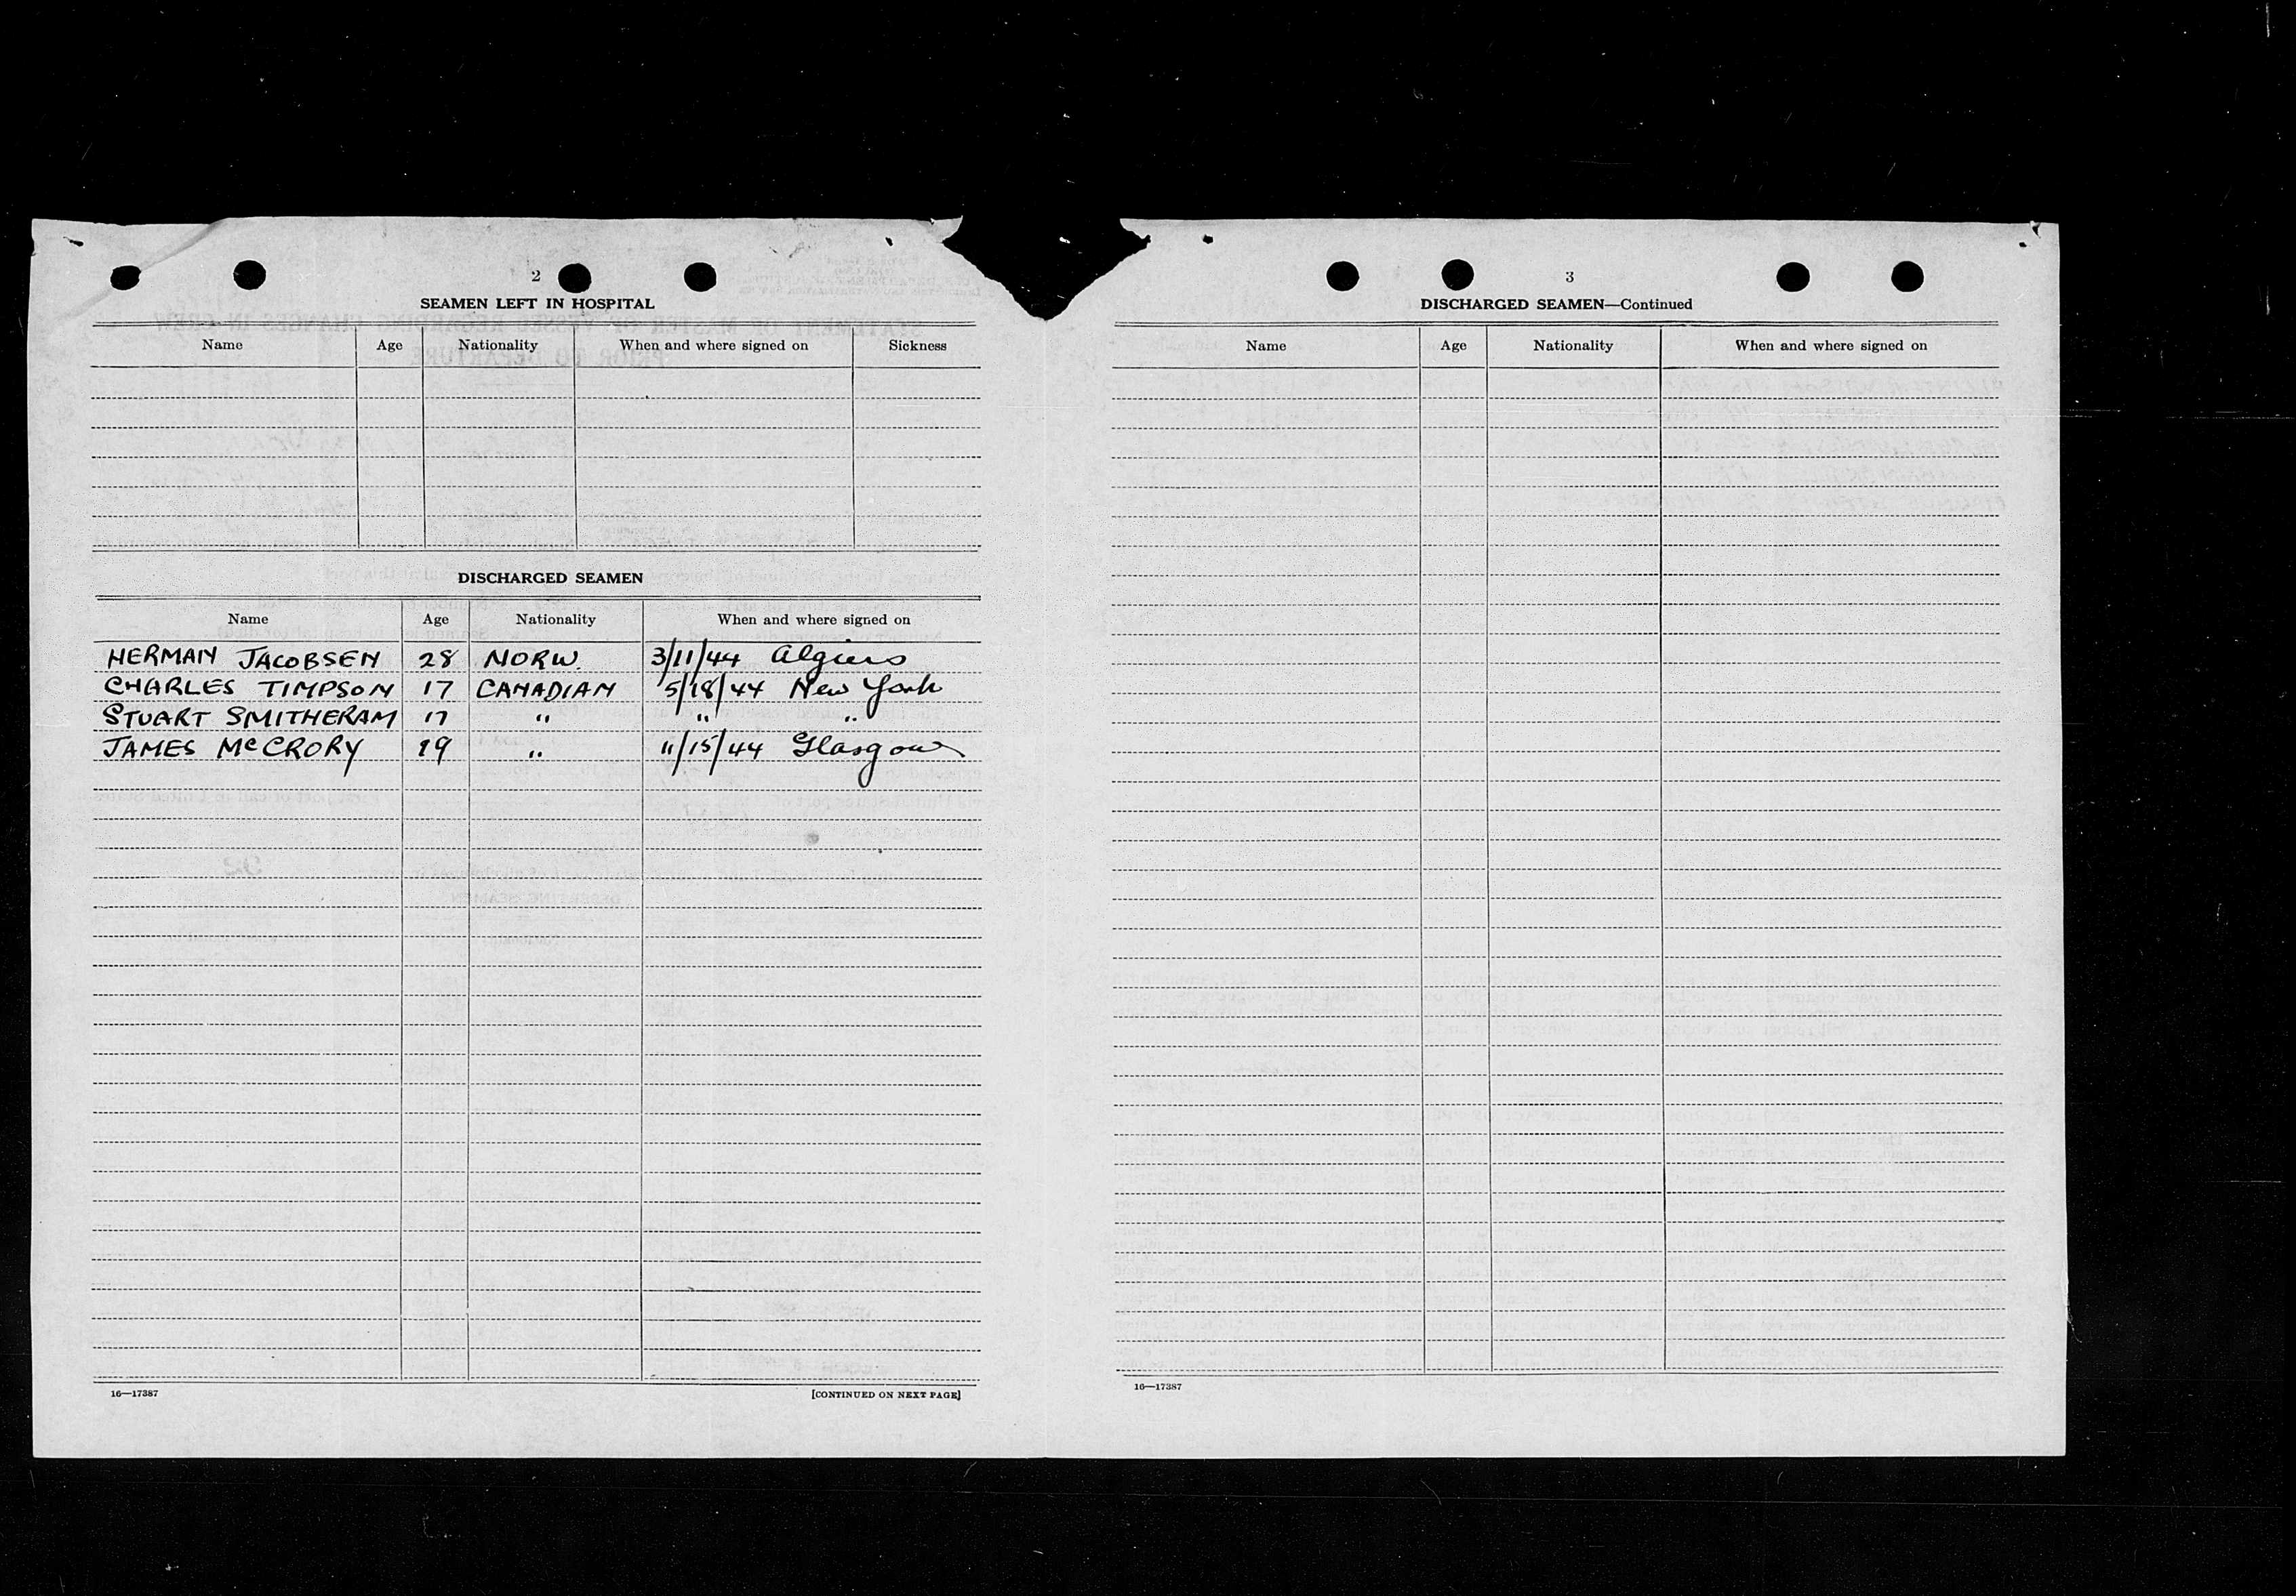 2
SEAMEN LEFT IN HOSPITAL
Name Age Nationality When and where signed on Sickness
DISCHARGED SEAMEN
Name Age Nationality When and where signed on
HERMAN JACOBSEN 28 NORW. 3/11/44 Algiers
CHARLES TIMPSON 17 CANADIAN 5/18/44 New York
STUART SMITHERAM 17 " " "
JAMES McCRORY 19 " 11/15/44 Glasgow
16—17387 [CONTINUED ON NEXT PAGE]
3
DISCHARGED SEAMEN—Continued
Name Age Nationality When and where signed on
16—17387